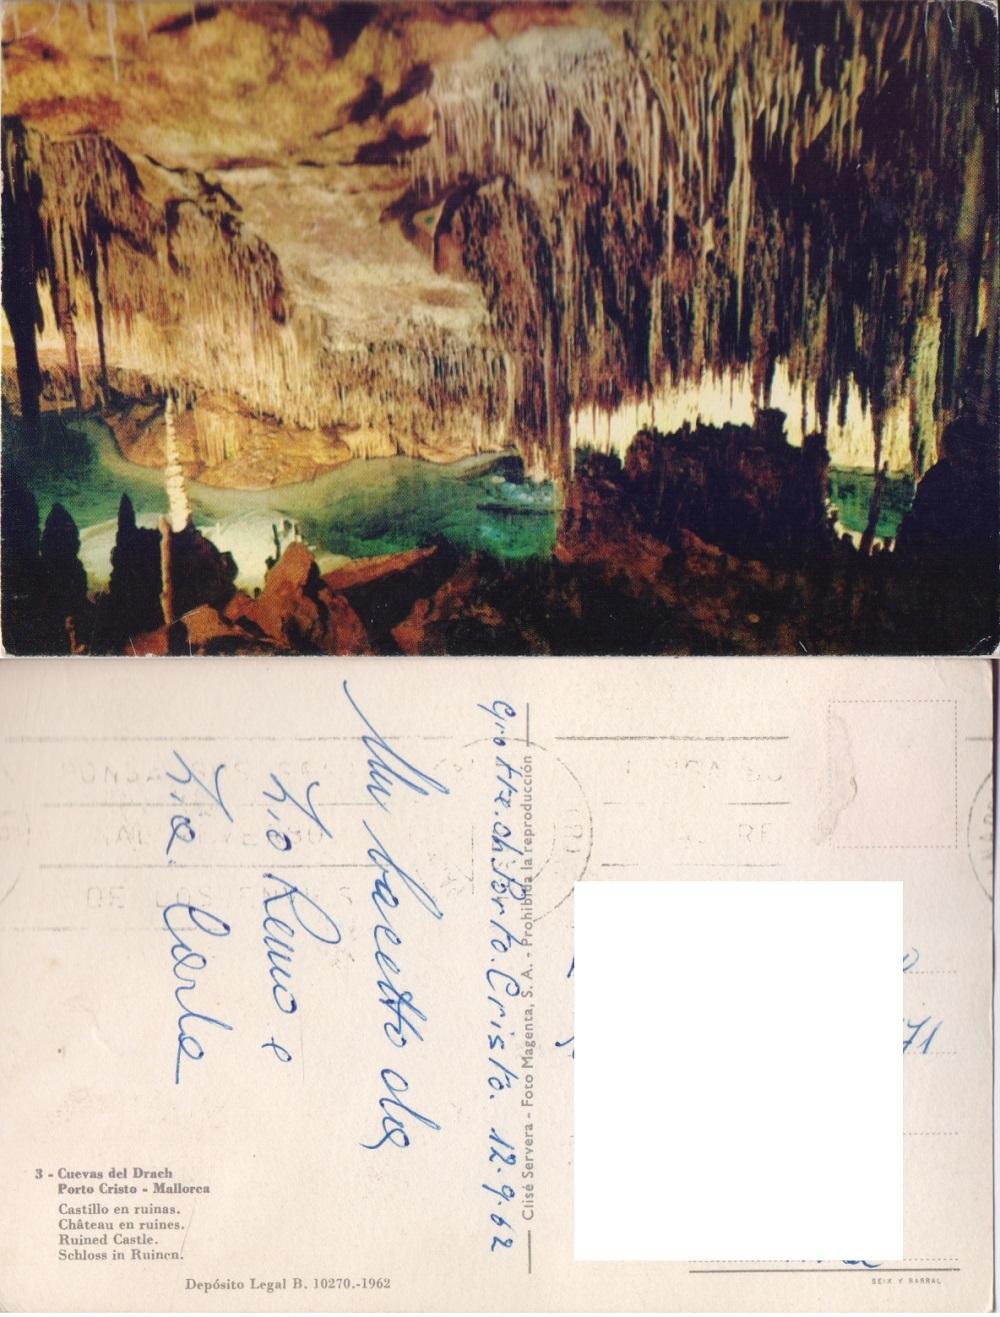 Grotte. di. Porto. Cristo. 12.9.62
Un bacetto da
Zio Remo e
Zia Carla
Clisé Servera - Foto Magenta, S. A. - Prohibida la reproducción
3 - Cuevas del Drach
Porto Cristo - Mallorca
Castillo en ruinas.
Château en ruines.
Ruined Castle.
Schloss in Ruinen.
Depósito Legal B. 10270.-1962
SEIX Y BARRAL
71